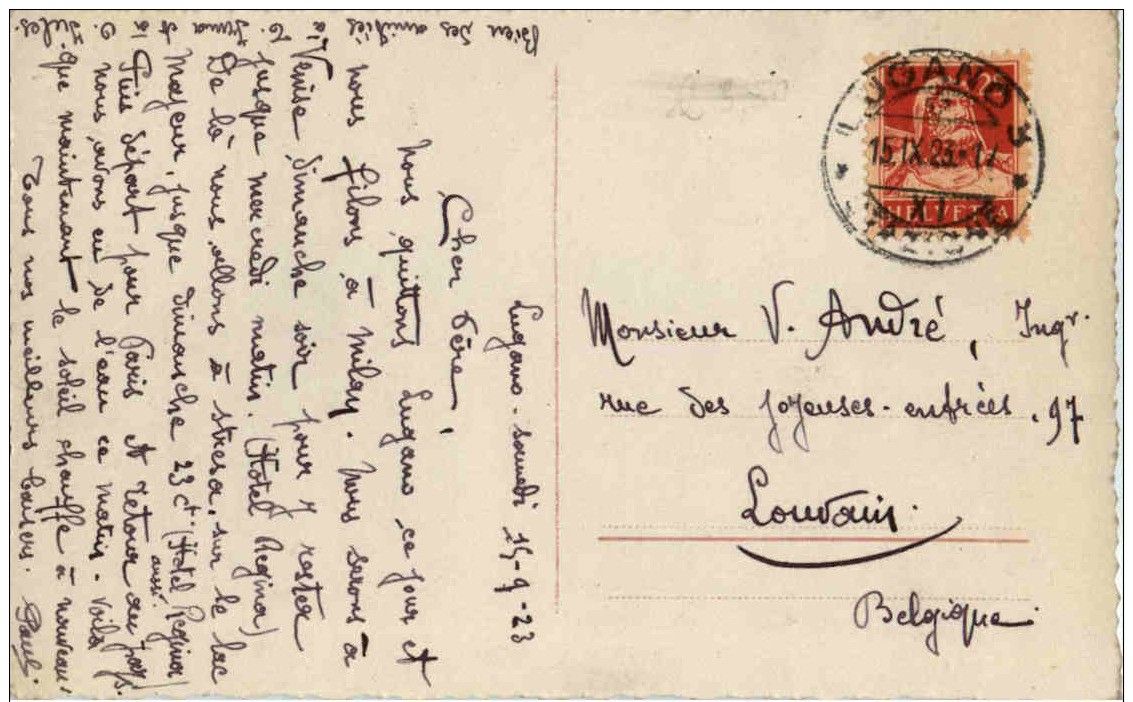 Lugano - samedi 15-9-23
Cher Père,
Nous quittons Lugano ce jour et
nous filons à Milan. Nous serons à
Venise dimanche soir pour y rester
jusque mercredi matin. (Hotel Regina)
De là nous allons à Stresa, sur le lac
Majeur, jusque dimanche 23 ct (Hotel Regina
aussi.)
Puis départ pour Paris et retour au pays.
nous avons eu de l'eau ce matin. Voilà
que maintenant le soleil chauffe à nouveau.
Tous nos meilleurs baisers. Paul
Bien des amitiés
à
et
LUGANO 3
15.IX.23.-17
XI
HELVETIA
Monsieur V. André, Ingr.
rue des joyeuses-entrées. 97
Louvain.
Belgique.